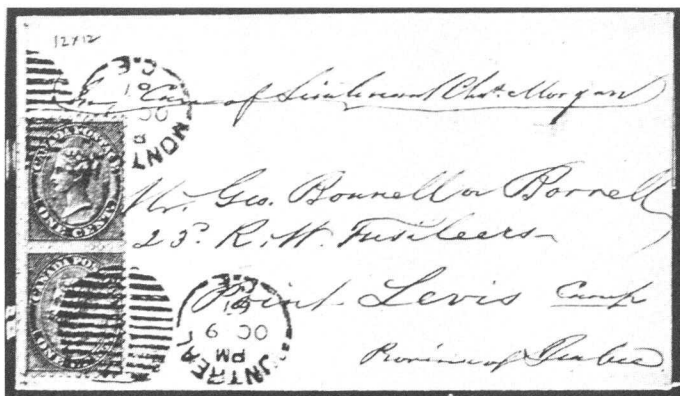 12x12
Care of Lieutenant Chas. Morgan
Mr. Geo. Bonnell or Bornell
23d. R. W. Fusileers
Point Levis Camp
Province of Quebec
CANADA POSTAGE
ONE CENT
CANADA POS
ONE CENT
MONT
OC
61
C.E
MONTREAL
PM
OC 9
61
C.E